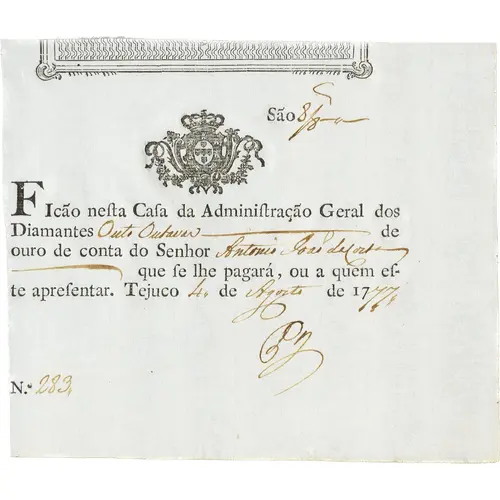 São 8/8
FIcão nesta Casa da Administração Geral dos
Diamantes Outo Outavas de
ouro de conta do Senhor Antonio João da Costa
que se lhe pagará, ou a quem es-
te apresentar. Tejuco 4 de Agosto de 1774
N.º 283